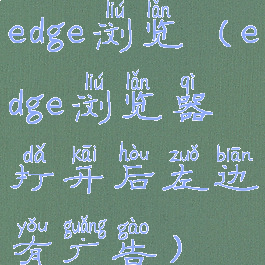 liú lǎn
edge浏览（e
liú lǎn qì
dge浏览器
dǎ kāi hòu zuǒ biān
打开后左边
yǒu guǎng gào
有广告）